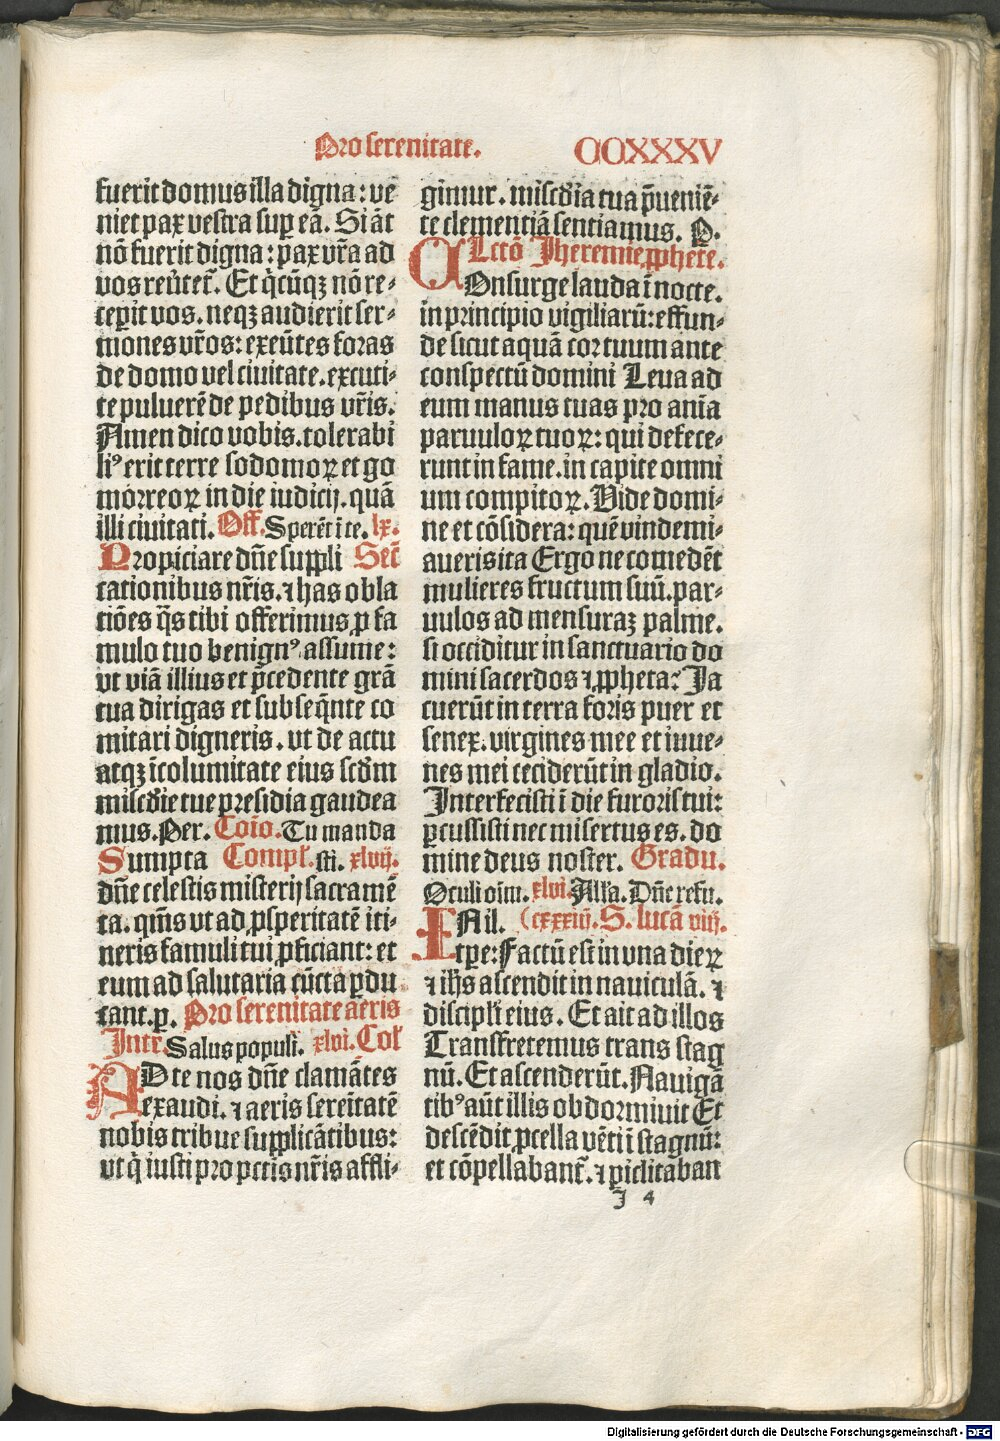 Pro serenitate.
CCXXXV
fuerit domus illa digna: ve
niet pax vestra sup eā. Si āt
nō fuerit digna: pax vr̄a ad
vos reūtet̄. Et q̄cūqꝫ nō re⸗
cepit vos. neqꝫ audierit ser⸗
mones vr̄os: exeūtes foras
de domo vel ciuitate. excuti⸗
te puluerē de pedibus vr̄is.
Amen dico vobis. tolerabi
liꝰ erit terre sodomoꝝ et go
morreoꝝ in die iudicij. quā
illi ciuitati. Off. Sperēt ī te. lx.
Propiciare dn̄e suppli Secr̄
cationibus nr̄is. ⁊ has obla
tiōes q̄s tibi offerimus ꝓ fa
mulo tuo benignꝰ assume:
vt viā illius et p̄cedente grā
tua dirigas et subseq̄nte co
mitari digneris. vt de actu
atqꝫ īcolumitate eius scd̄m
miscd̄ie tue presidia gaudea
mus. Per. Cōio. Tu manda
Sumpta Compl̄. sti. xlvij.
dn̄e celestis misterij sacramē
ta. qm̄s vt ad ꝓsperitatē iti⸗
neris famuli tui ꝓficiant: et
eum ad salutaria cūcta ꝑdu
cant. ꝑ. Pro serenitate aeris
Intr̄. Salus populi. xlvi. Col̄
AD te nos dn̄e clamātes
exaudi. ⁊ aeris sereītatē
nobis tribue supplicātibus:
vt q̄ iusti pro pctīs nr̄is affli⸗
gimur. miscd̄ia tua p̄ueniē⸗
te clementiā sentiamus. P.
Lctō Jheremie ꝓphete.
COnsurge lauda ī nocte.
in principio vigiliarū: effun⸗
de sicut aquā cor tuum ante
conspectū domini Leua ad
eum manus tuas pro anīa
paruuloꝝ tuoꝝ: qui defece⸗
runt in fame. in capite omni
um compitoꝝ. Vide domi⸗
ne et cōsidera: quē vindemi⸗
aueris ita Ergo ne comedēt
mulieres fructum suū. par⸗
uulos ad mensuraꝫ palme.
si occiditur in sanctuario do
mini sacerdos ⁊ ꝓpheta? Ja
cuerūt in terra foris puer et
senex. virgines mee et iuue⸗
nes mei ceciderūt in gladio.
Interfecisti ī die furoris tui:
ꝑcussisti nec misertus es. do
mine deus noster. Gradu.
Oculi oīm. xlvi. All̄a. Dn̄e refu.
INil. (cxxxiij. S. lucā viij.
tꝑe: Factū est in vna dieꝝ
⁊ ih̄s ascendit in nauiculā. ⁊
discipl̄i eius. Et ait ad illos
Transfretemus trans stag
nū. Et ascenderūt. Nauigā
tibꝰ aūt illis obdormiuit Et
descēdit ꝓcella vēti ī stagnū:
et cōpellabant̄. ⁊ ꝑiclitaban
J 4
Digitalisierung gefördert durch die Deutsche Forschungsgemeinschaft - DFG